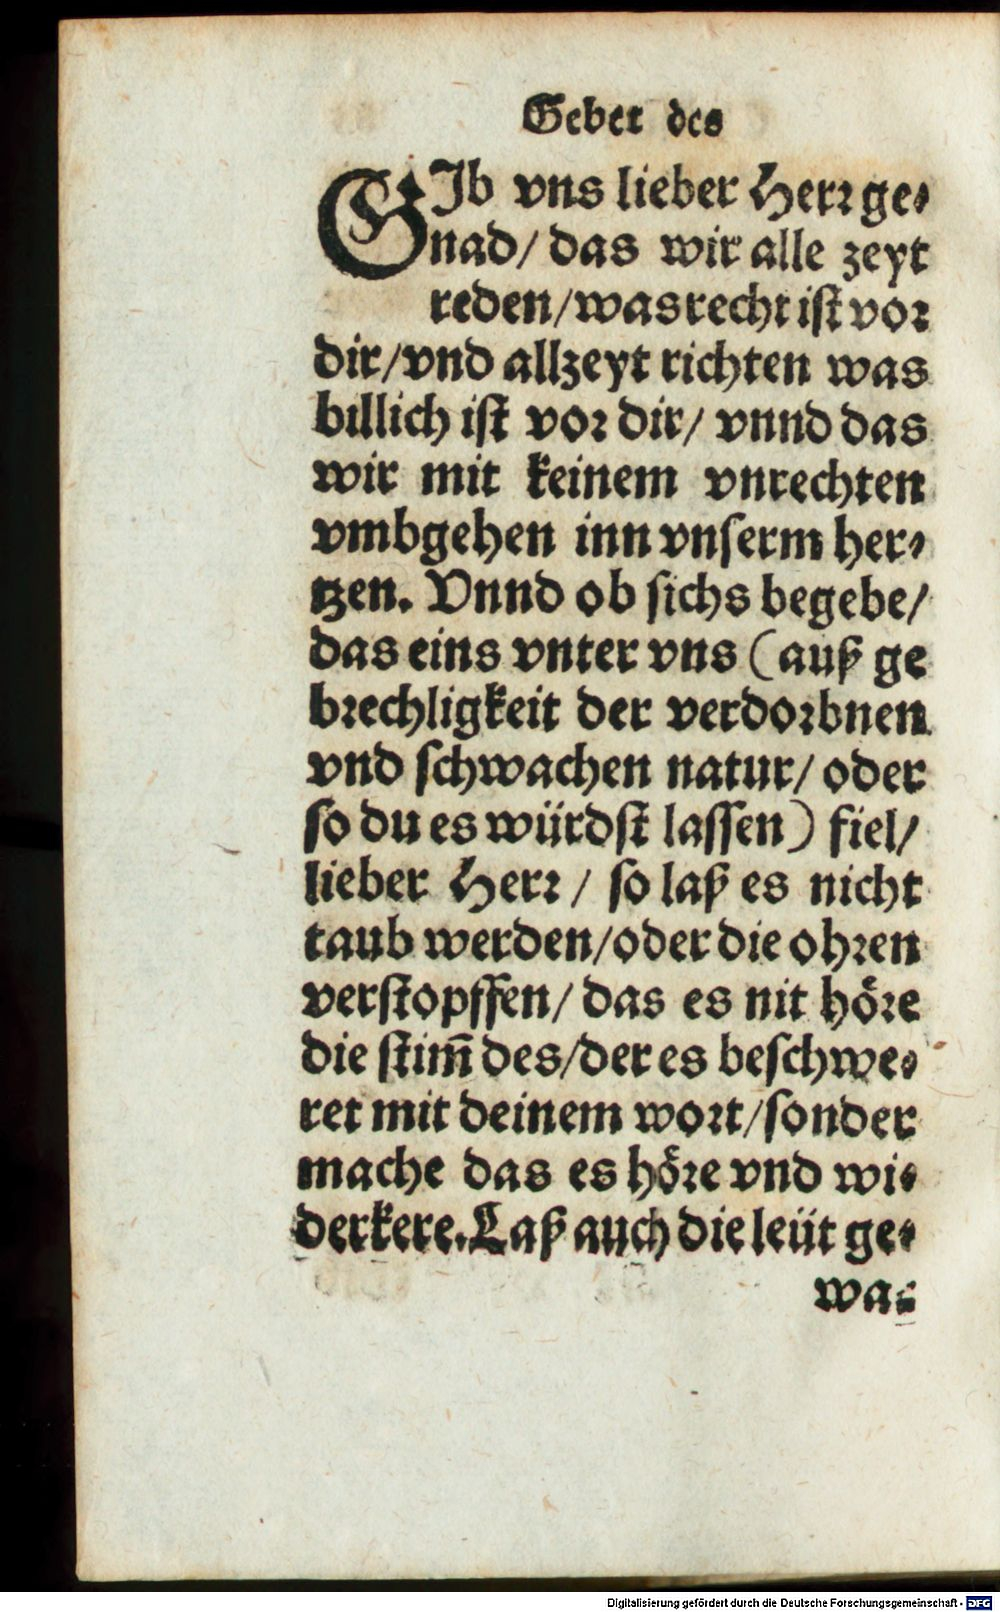 Gebet des
GIb vns lieber Herr ge-
nad/ das wir alle zeyt
reden/was recht ist vor
dir/vnd allzeyt richten was
billich ist vor dir/ vnnd das
wir mit keinem vnrechten
vmbgehen inn vnserm her-
tzen. Vnnd ob sichs begebe/
das eins vnter vns (auß ge
brechligkeit der verdorbnen
vnd schwachen natur/ oder
so du es würdst lassen) fiel/
lieber Herr / so laß es nicht
taub werden/oder die ohren
verstopffen/ das es nit höre
die stim̄ des/der es beschwe-
ret mit deinem wort/sonder
mache das es höre vnd wi-
derkere. Laß auch die leüt ge-
wa-
Digitalisierung gefördert durch die Deutsche Forschungsgemeinschaft - DFG